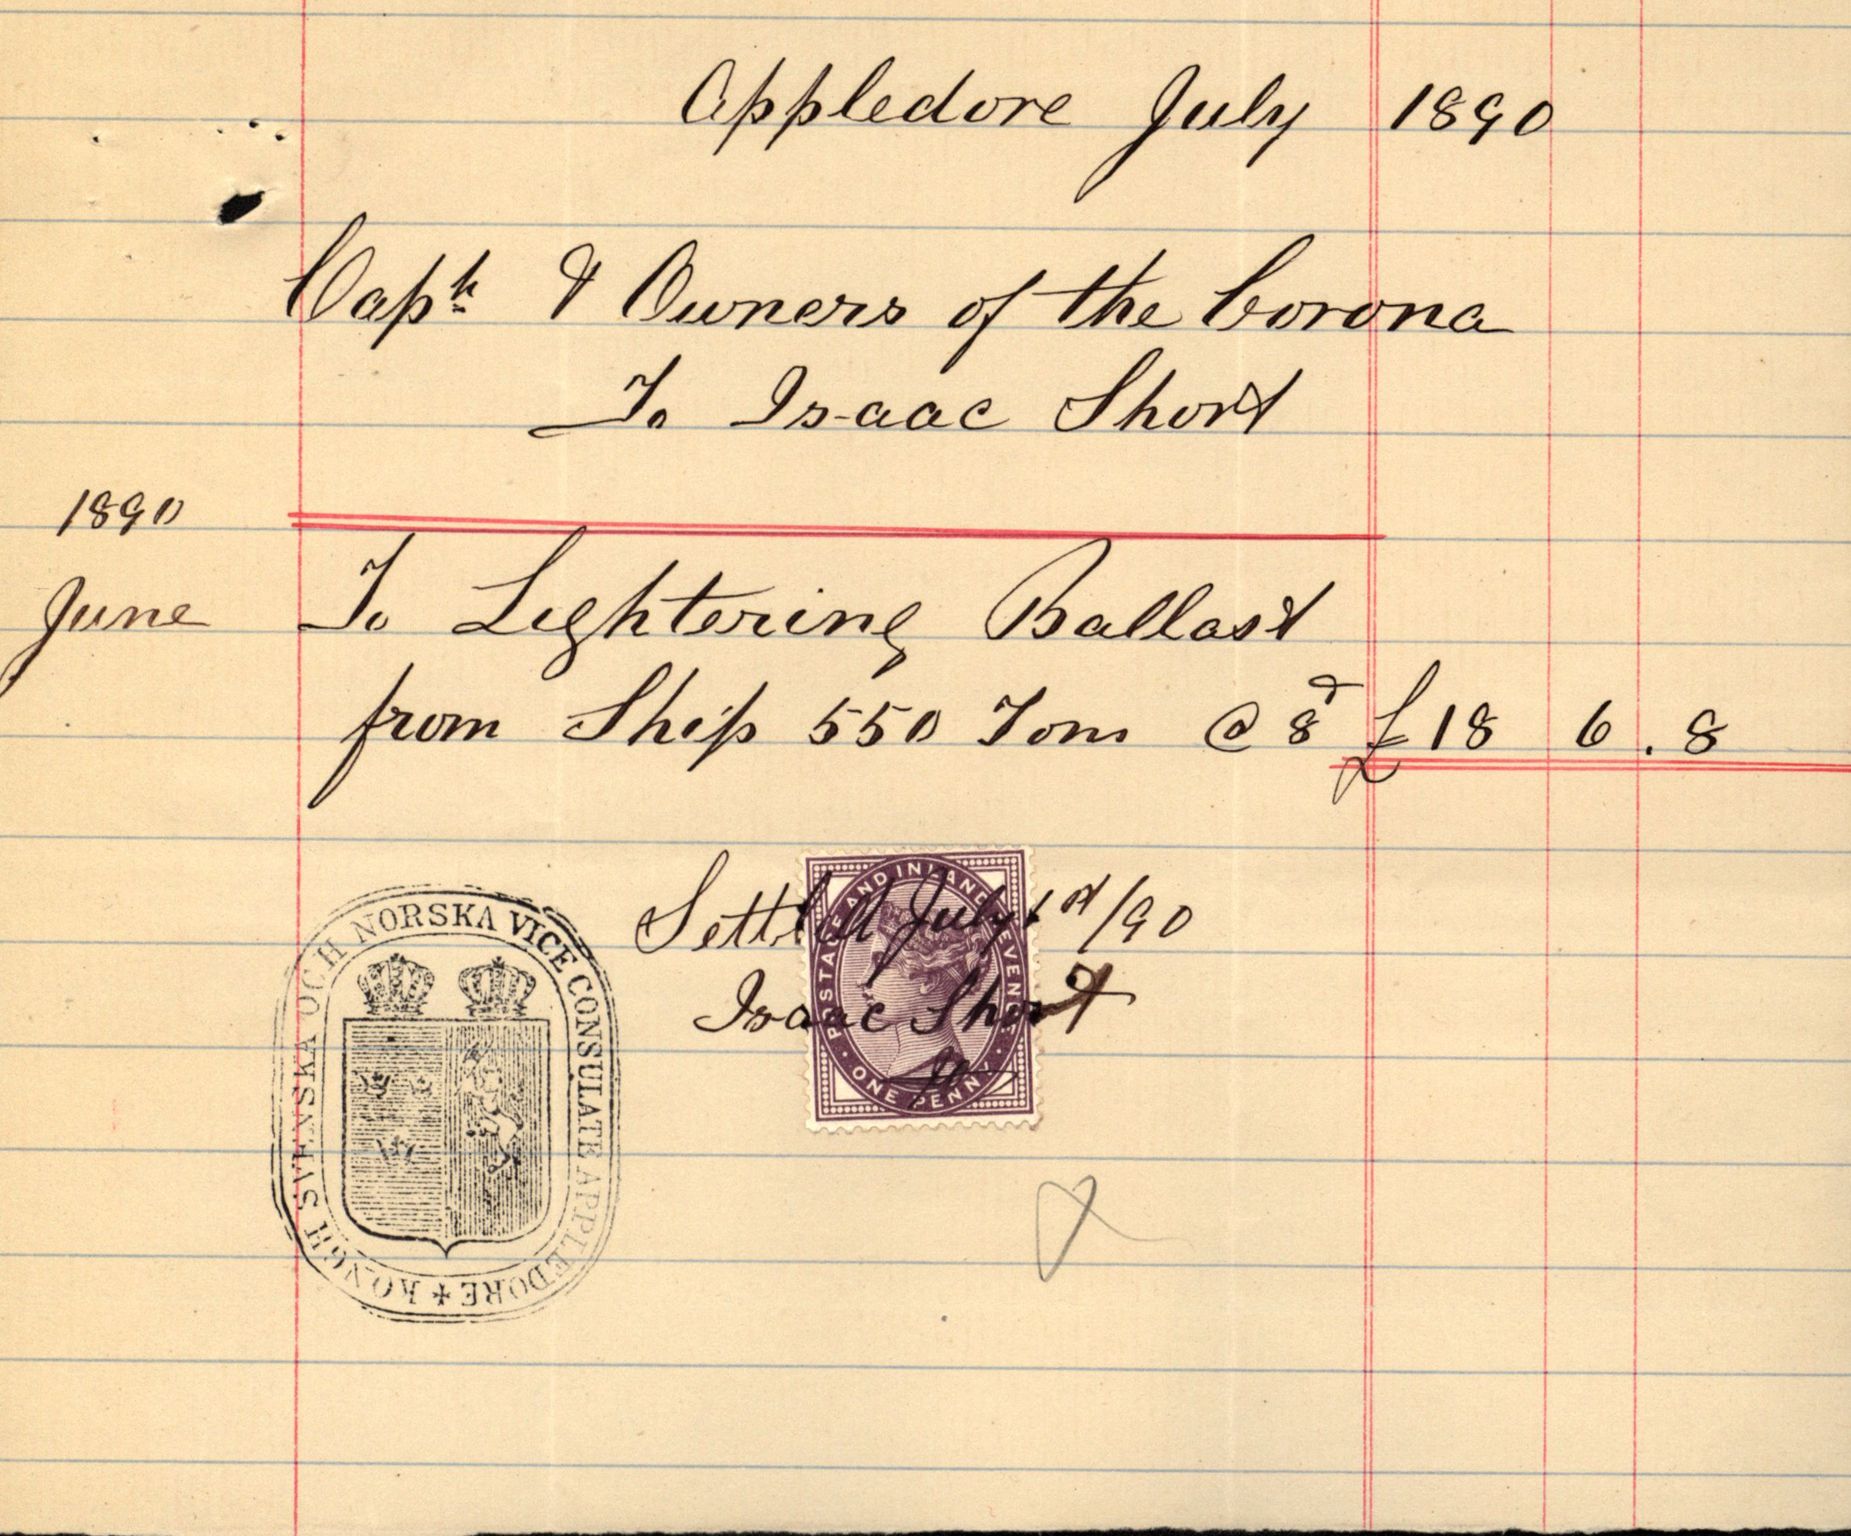 Appledore July 1890
Capt & Owners of the Corona
To Isaac Short
1890
June To Lightering Ballast
from Ship 550 Tons @ 8d £18 6. 8
Settled July 1st/90
Isaac Short
POSTAGE AND INLAND REVENUE
ONE PENNY
KONGH SVENSKA OCH NORSKA VICE CONSULATE APPLEDORE